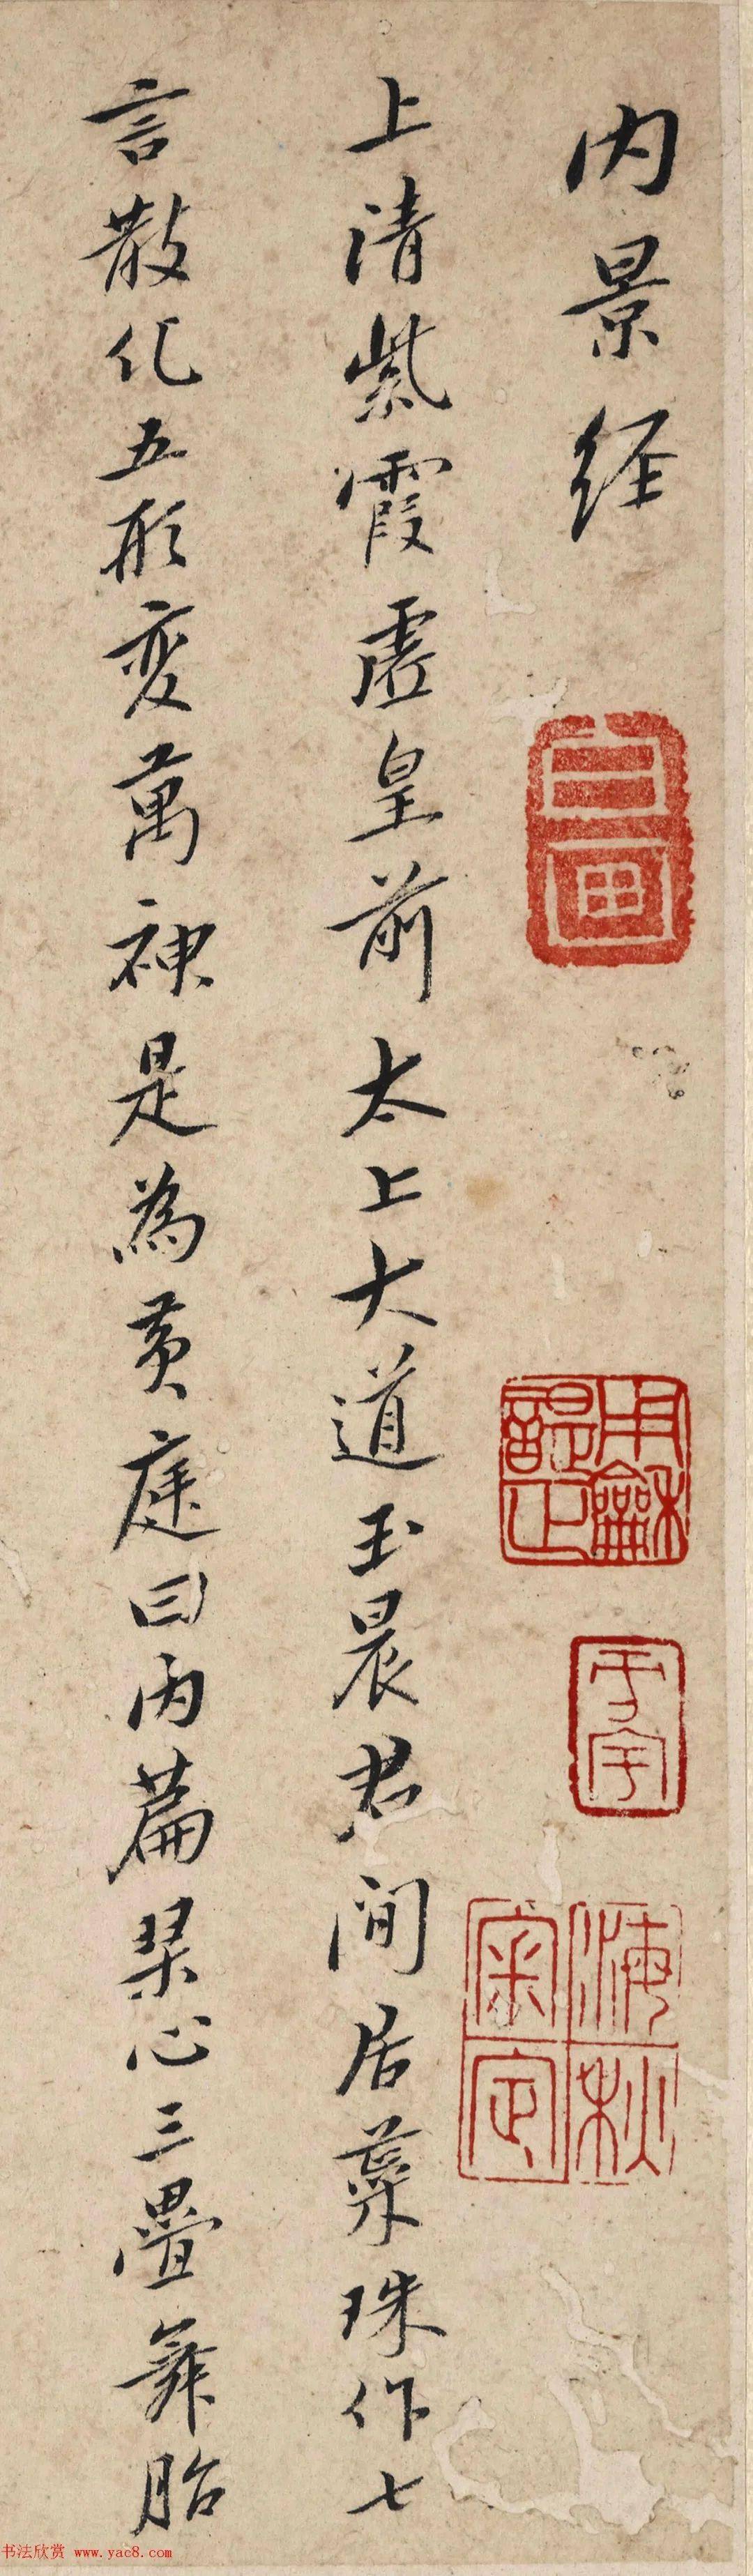 内景经
上清紫霞虚皇前太上大道玉晨君间居蕊珠作七
言散化五形变萬神是為黄庭曰内篇琹心三疊舞胎
于宇
海秋審定
书法欣赏 www.yac8.com